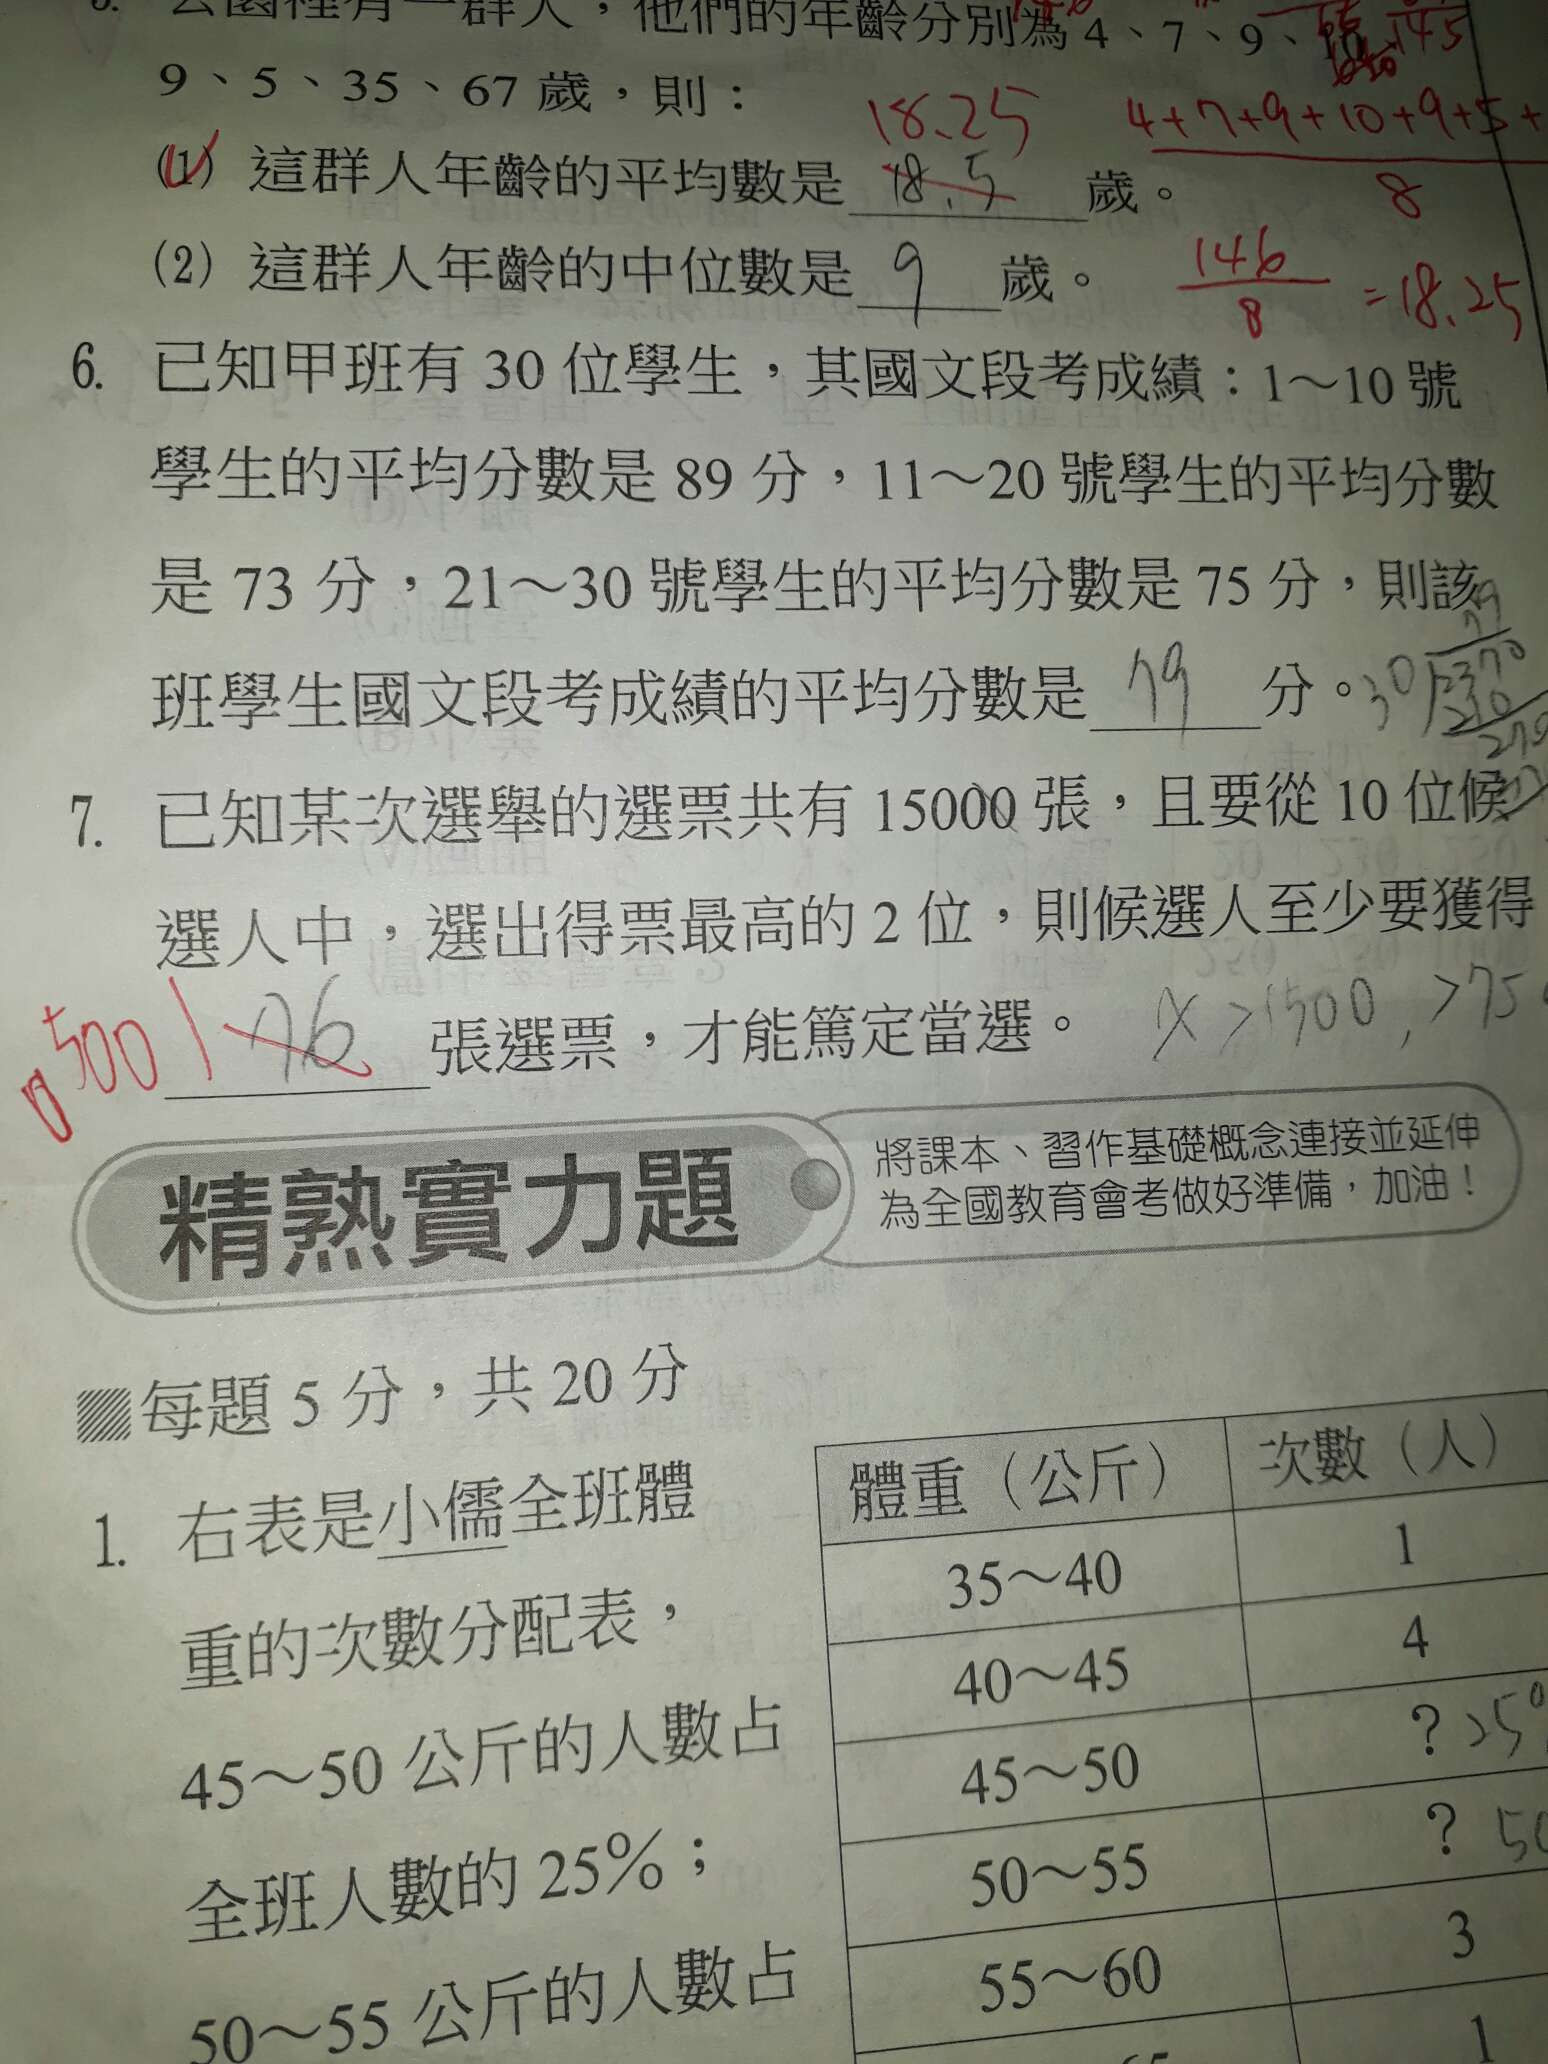 5. 公園裡有一群人，他們的年齡分別為 4、7、9、10、
9、5、35、67 歲，則：
18.25
4+7+9+10+9+5+
8
(1) 這群人年齡的平均數是 18.5 歲。
(2) 這群人年齡的中位數是 9 歲。
146
8
=18.25
6. 已知甲班有 30 位學生，其國文段考成績：1～10 號
學生的平均分數是 89 分，11～20 號學生的平均分數
是 73 分，21～30 號學生的平均分數是 75 分，則該
班學生國文段考成績的平均分數是 79 分。
79
30 2370
210
270
7. 已知某次選舉的選票共有 15000 張，且要從 10 位候
選人中，選出得票最高的 2 位，則候選人至少要獲得
5001 76 張選票，才能篤定當選。 x>1500, >75
精熟實力題
將課本、習作基礎概念連接並延伸
為全國教育會考做好準備，加油！
每題 5 分，共 20 分
1. 右表是小儒全班體
重的次數分配表，
45～50 公斤的人數占
全班人數的 25％；
50～55 公斤的人數占
體重（公斤） 次數（人）
35～40 1
40～45 4
45～50 ? 25%
50～55 ? 50
55～60 3
65 1